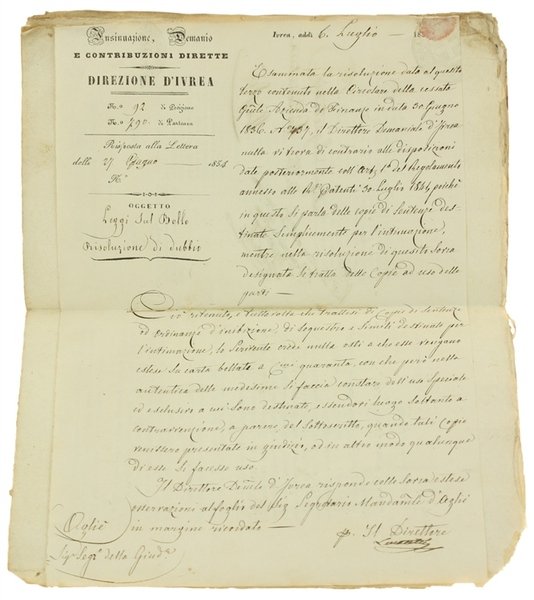 Insinuazione, Demanio
E CONTRIBUZIONI DIRETTE
DIREZIONE D'IVREA
N.o 92 di Posizione
N.o 790 di Partenza
Risposta alla Lettera
delli 27 Giugno 1854
N.o
OGGETTO
Leggi sul Bollo
Risoluzione di dubbio
Ivrea, addì 6 Luglio 185
Esaminata la risoluzione data al quesito
terzo contenuto nella Circolare della cessata
Azienda di Finanze in data 30 Giugno
1836 il Direttore Demaniale d'Ivrea
nulla vi trova di contrario alle disposizioni
date posteriormente coll'art. 1o del Regolamento
annesso alle Patenti 30 Luglio poichè
in questo si parla delle copie di Sentenze des-
tinate semplicemente per l'intimazione,
mentre nella risoluzione di quesito sovra
designata si tratta delle Copie ad uso delle
parti
Ciò ritenuto, e tuttavolta che trattasi di Copie di Sentenze
ed Ordinanze d'inibizione, di sequestro e simili destinate per
l'intimazione, lo Scrivente crede nulla osti a che esse vengano
estese su carta bollata a Cmi quaranta, con che però nelle
autentica delle medesime si faccia constare dell'uso speciale
ed esclusivo a cui sono destinate, essendovi luogo soltanto a
contravvenzione, a parere del Sottoscritto, quando tali Copie
venissero presentate in giudizio, od in altro modo qualunque
di esse si facesse uso.
Il Direttore d'Ivrea risponde colle sovra estese
osservazioni al foglio del Sig. Segretario Mandamle d'Agliè
in margine ricordato
Il Direttore
Agliè
Sigr Segro della Giudra